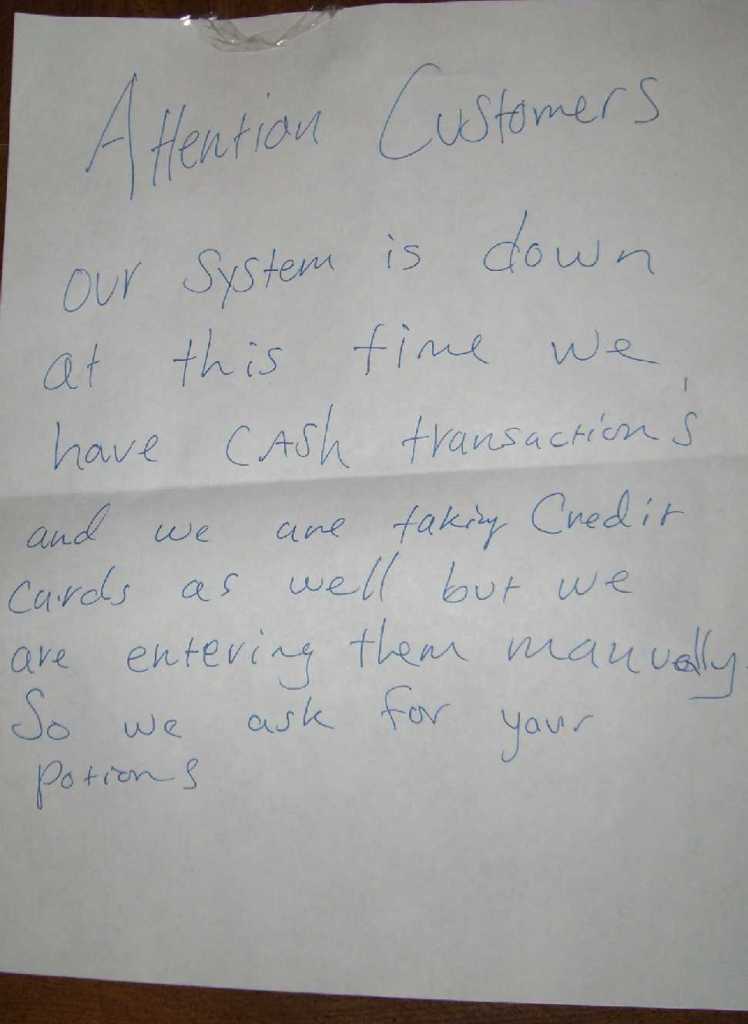 Attention Customers
our System is down
at this time we
have CASh transaction's
and we are taking Credit
Cards as well but we
are entering them manually.
So we ask for your
potions